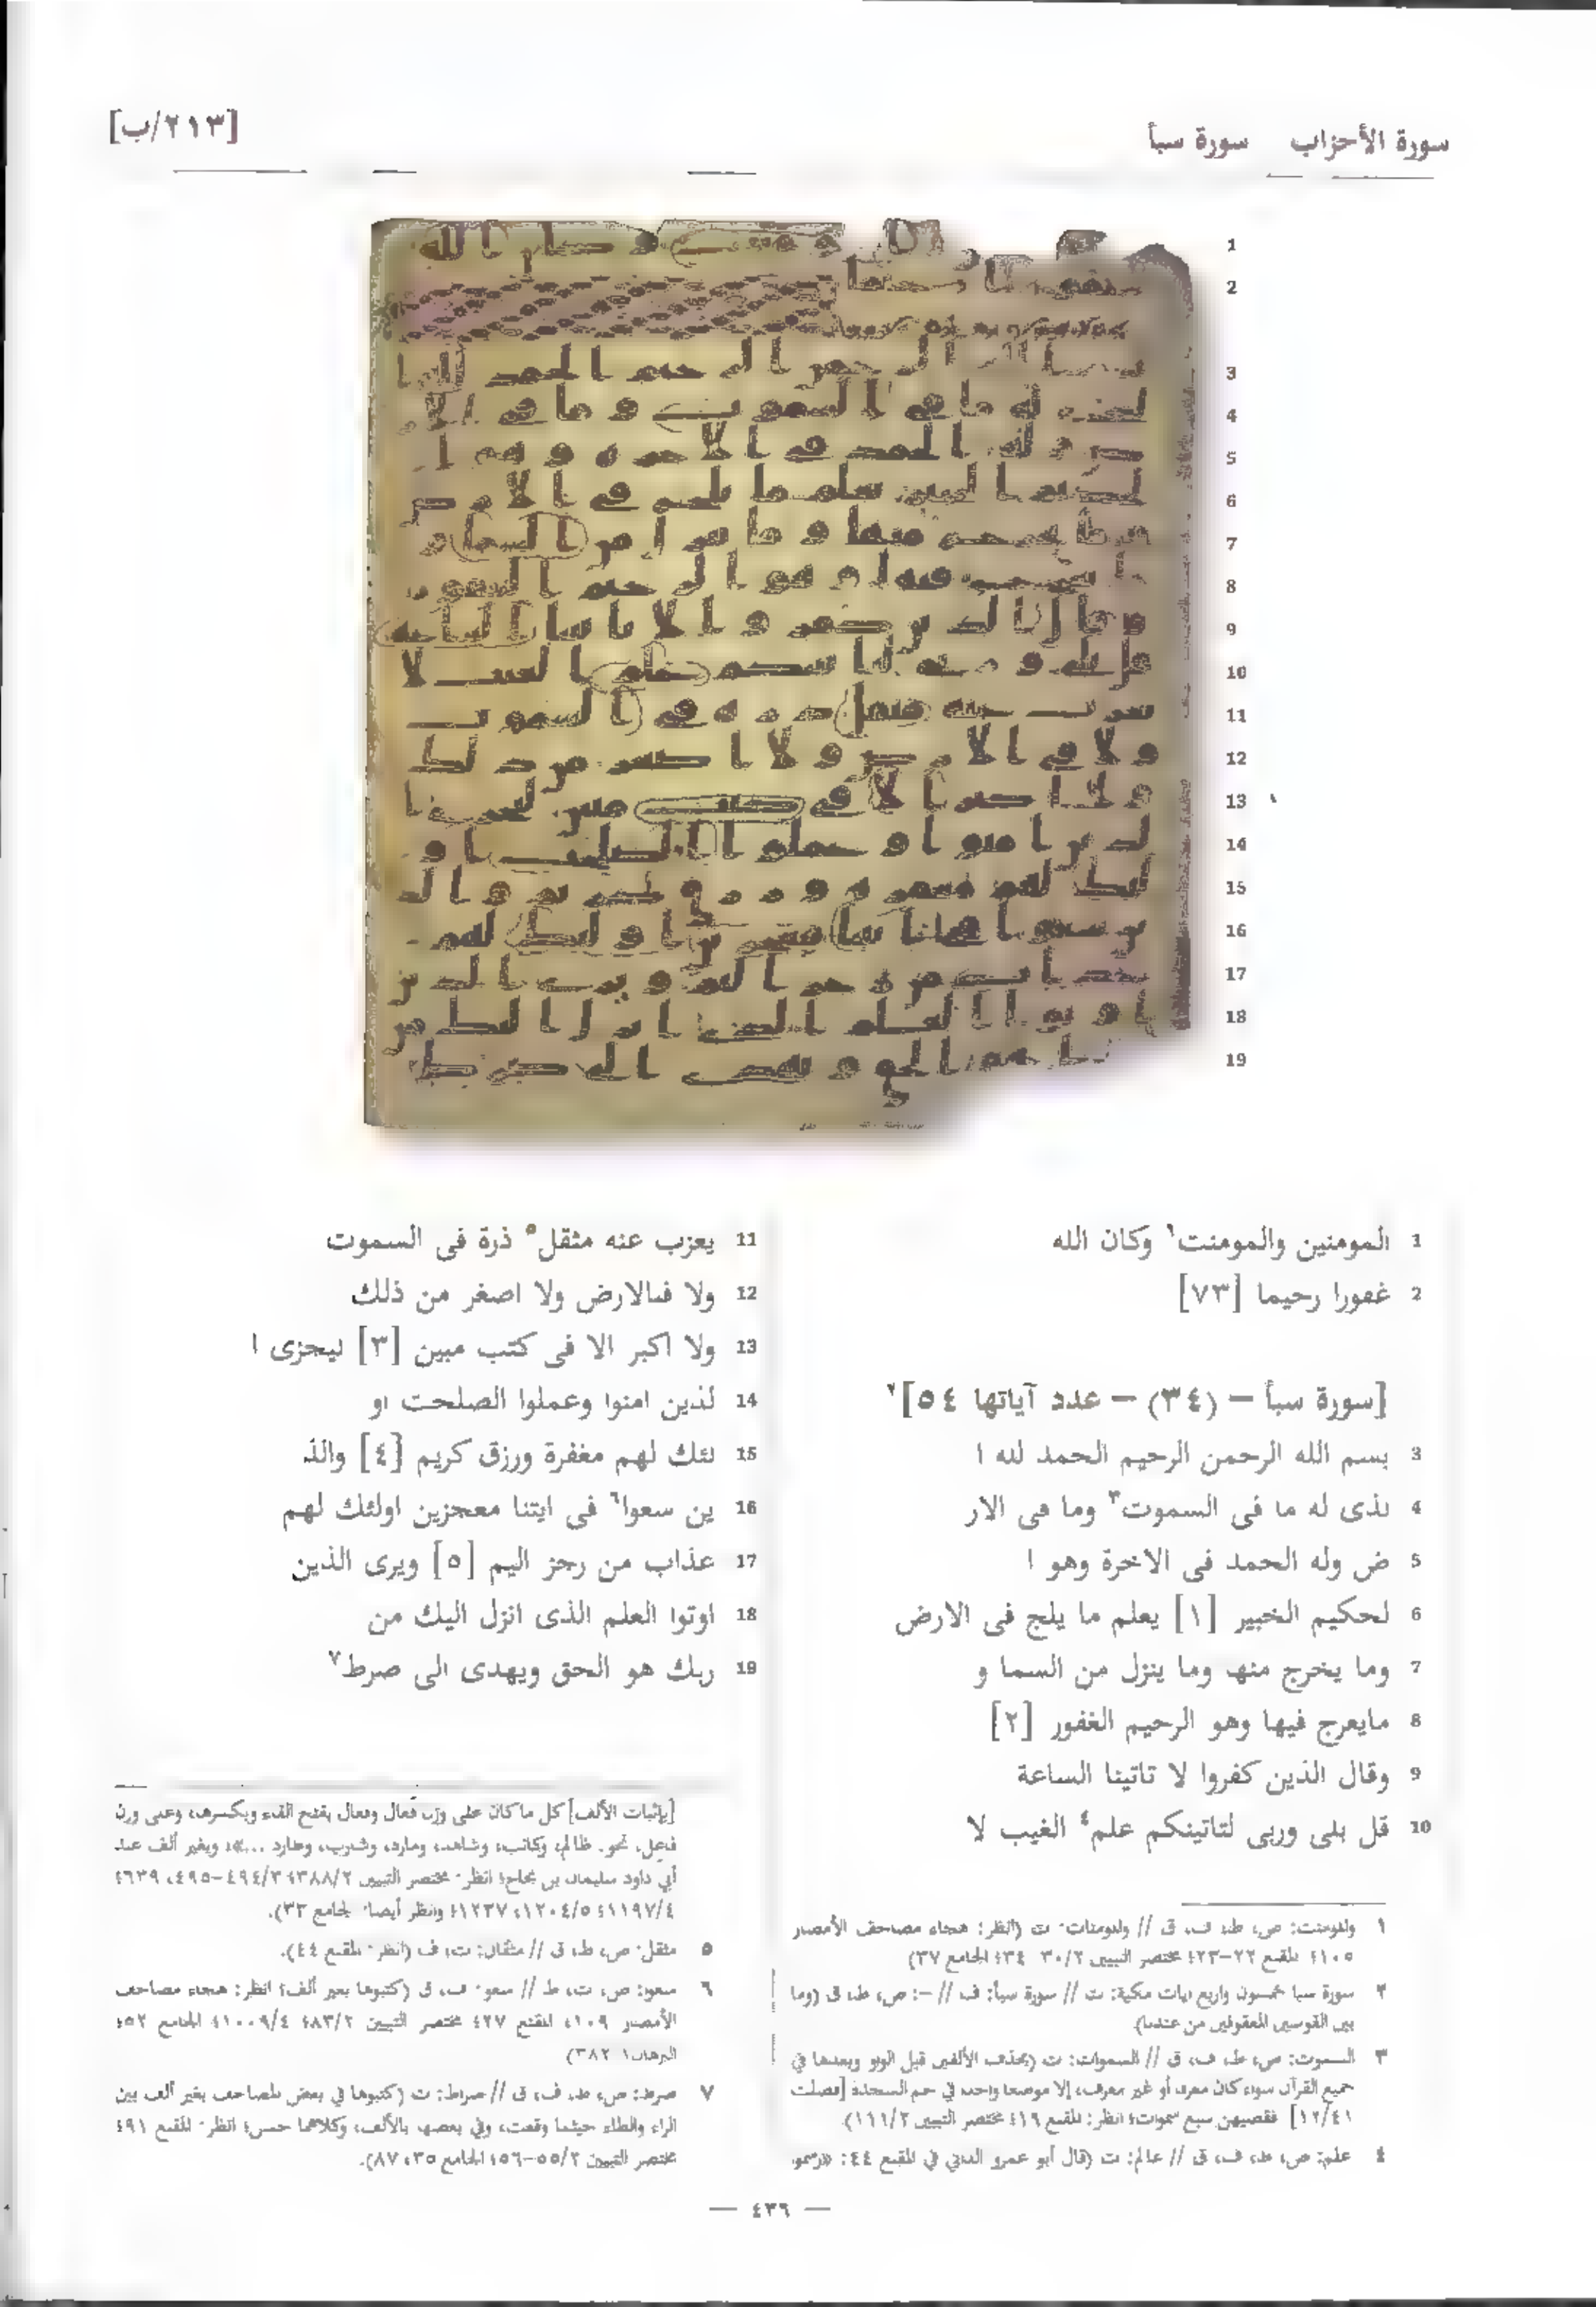 سورة الأحزاب سورة سبأ
[٢١٣/ب]
1 المومنين والمومنت١ وكان الله
2 غفورا رحيما [٧٣]
[سورة سبأ – (٣٤) – عدد آياتها ٥٤]٢
3 بسم الله الرحمن الرحيم الحمد لله ا
4 لذى له ما فى السموت٣ وما فى الار
5 ض وله الحمد فى الاخرة وهو ا
6 لحكيم الخبير [١] يعلم ما يلج فى الارض
7 وما يخرج منها وما ينزل من السما و
8 مايعرج فيها وهو الرحيم الغفور [٢]
9 وقال الذين كفروا لا تاتينا الساعة
10 قل بلى وربى لتاتينكم علم٤ الغيب لا
11 يعزب عنه مثقل٥ ذرة فى السموت
12 ولا فىالارض ولا اصغر من ذلك
13 ولا اكبر الا فى كتب مبين [٣] ليجزى ا
14 لذين امنوا وعملوا الصلحت او
15 لئك لهم مغفرة ورزق كريم [٤] والذ
16 ين سعوا٦ فى ايتنا معجزين اولئك لهم
17 عذاب من رجز اليم [٥] ويرى الذين
18 اوتوا العلم الذى انزل اليك من
19 ربك هو الحق ويهدى الى صرط٧
١ والمومنت: ص، ط، ف، ق // والمومنات: ت (انظر: هجاء مصاحف الأمصار
١٠٥؛ المقنع ٢٢-٢٣؛ مختصر التبيين ٣٠/٢-٣٤؛ الجامع ٣٧)
٢ سورة سبا خمسون واربع ايات مكية: ت // سورة سبأ: ف // –: ص، ط، ق (وما
بين القوسين المعقوفين من عندنا).
٣ السموت: ص، ط، ف، ق // السموات: ت (بحذف الألفين قبل الواو وبعدها في
جميع القرآن سواء كان معرف أو غير معرف، إلا موضعا واحدا في حم السجدة [فصلت
١٢/٤١] فقضيهن سبع سموات؛ انظر: المقنع ١٩؛ مختصر التبيين ١١١/٢).
٤ علم: ص، ط، ف، ق // عالم: ت (قال أبو عمرو الداني في المقنع ٤٤: «رسمو
[بإثبات الألف] كل ما كان على وزن فَعال وفعال بفتح الفاء وبكسرها، وعلى وزن
فاعل، نحو. ظالم، وكاتب، وشاهد، ومارد، وشارب، وطارد ...»؛ وبغير ألف عند
أبي داود سليمان بن نجاح؛ انظر: مختصر التبيين ٣٨٨/٢؛ ٤٩٤/٣-٤٩٥، ٦٣٩؛
١١٩٧/٤؛ ١٢٠٤/٥، ١٢٣٧؛ وانظر أيضا: الجامع ٣٣).
٥ مثقل: ص، ط، ق // مثقال: ت، ف (انظر: المقنع ٤٤).
٦ سعوا: ص، ت، ط // سعو: ف، ق (كتبوها بغير ألف؛ انظر: هجاء مصاحف
الأمصار ١٠٩؛ المقنع ٢٧؛ مختصر التبيين ٨٣/٢؛ ١٠٠٩/٤؛ الجامع ٥٢؛
البرهان ٣٨٢/١)
٧ صرط: ص، ط، ف، ق // صراط: ت (كتبوها في بعض المصاحف بغير ألف بين
الراء والطاء حيثما وقعت، وفي بعضها بالألف، وكلاهما حسن؛ انظر: المقنع ٩١؛
مختصر التبيين ٥٥/٢-٥٦؛ الجامع ٣٥، ٨٧).
— ٤٣٦ —